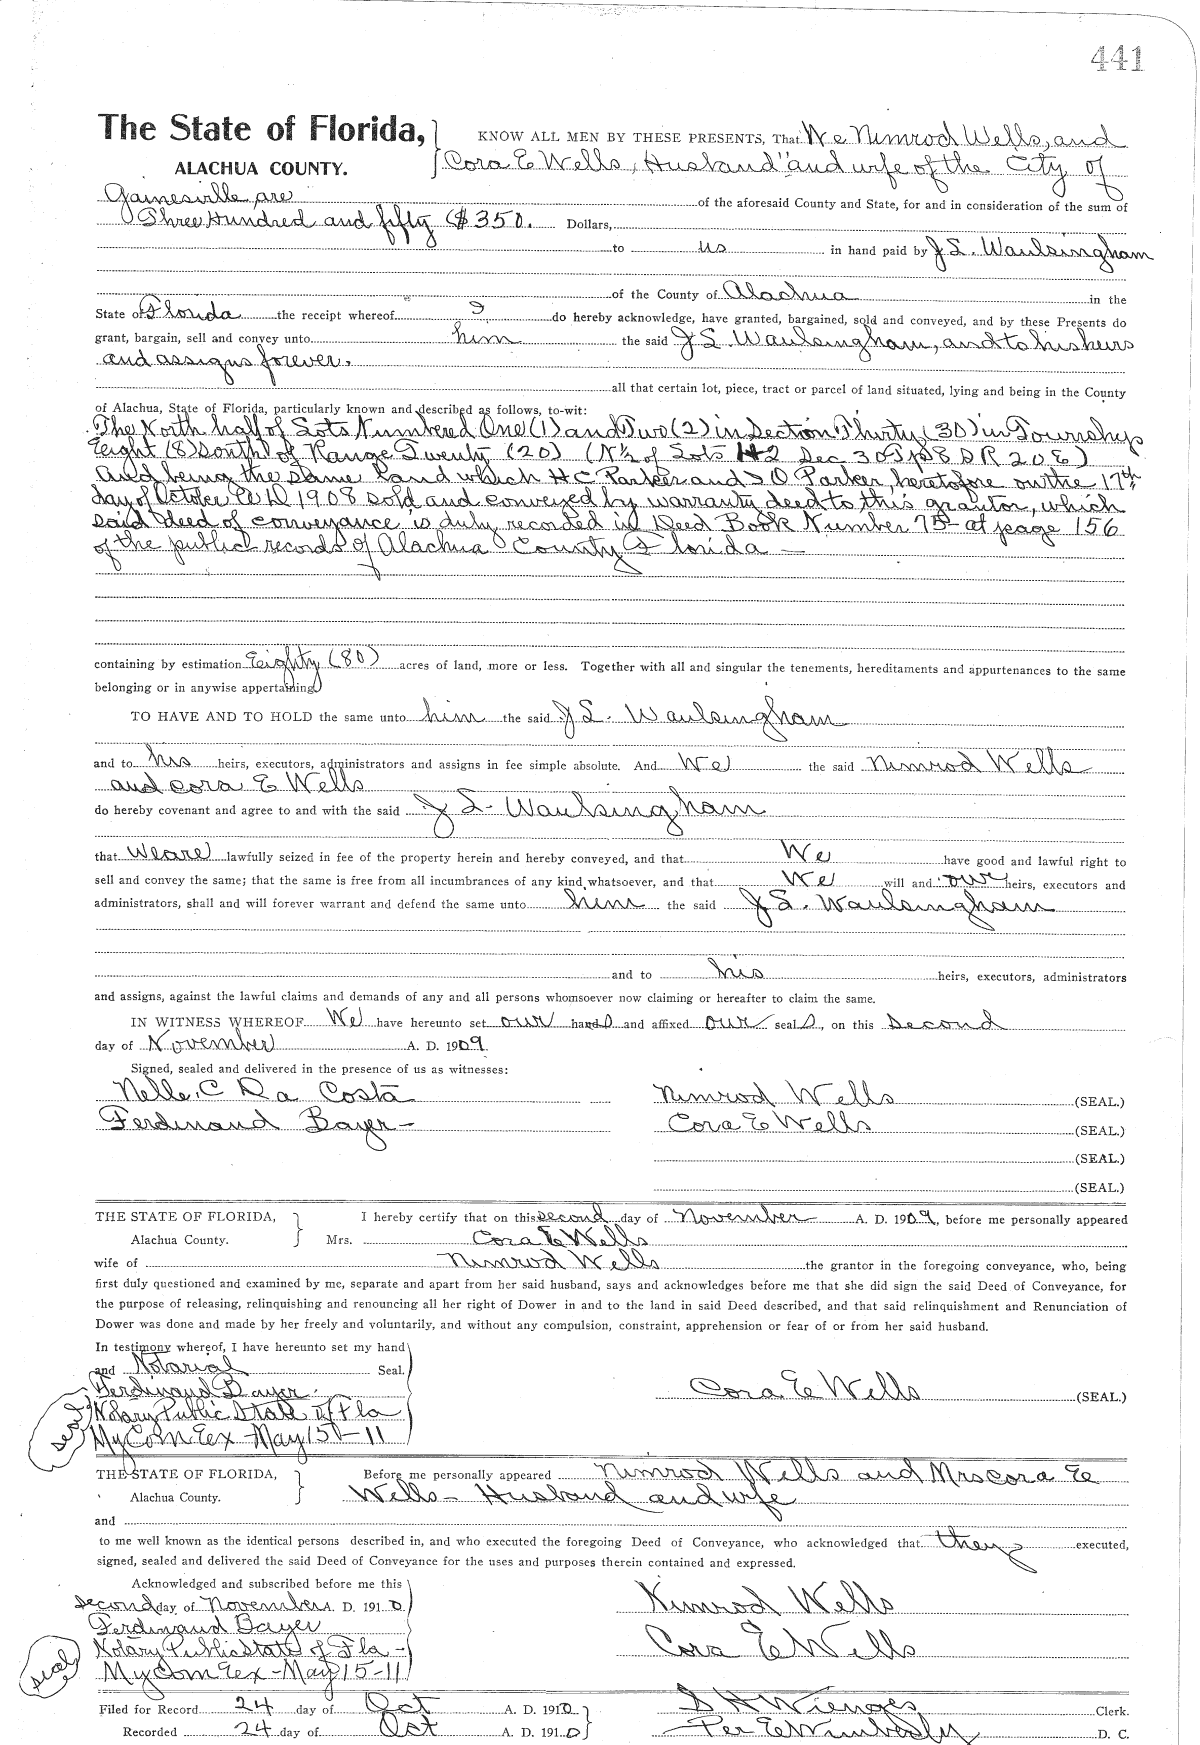 441
The State of Florida, KNOW ALL MEN BY THESE PRESENTS, That We Nimrod Wells, and
ALACHUA COUNTY. Cora E Wells, Husband and wife of the City of
Gainesville are of the aforesaid County and State, for and in consideration of the sum of
Three Hundred and fifty ($350. Dollars,
to us in hand paid by J S. Waulsingham
of the County of Alachua in the
State of Florida the receipt whereof I do hereby acknowledge, have granted, bargained, sold and conveyed, and by these Presents do
grant, bargain, sell and convey unto him the said J S. Waulsingham, and to his heirs
and assigns forever.
all that certain lot, piece, tract or parcel of land situated, lying and being in the County
of Alachua, State of Florida, particularly known and described as follows, to-wit:
The North half of Lots Numbered One (1) and Two (2) in Section Thirty (30) in Township
Eight (8) South of Range Twenty (20) (N½ of Lots 1+2 Sec 30 Tp 8 S R 20 E)
and being the same land which H C Parker and Parker, heretofore on the 17th
day of October A D 1908 sold and conveyed by warranty deed to this grantor, which
said deed of conveyance is duly recorded in Deed Book Number 75 at page 156
of the public records of Alachua County Florida —
containing by estimation Eighty (80) acres of land, more or less. Together with all and singular the tenements, hereditaments and appurtenances to the same
belonging or in anywise appertaining
TO HAVE AND TO HOLD the same unto him the said J S. Waulsingham
and to his heirs, executors, administrators and assigns in fee simple absolute. And We the said Nimrod Wells
and Cora E Wells
do hereby covenant and agree to and with the said J S. Waulsingham
that We are lawfully seized in fee of the property herein and hereby conveyed, and that We have good and lawful right to
sell and convey the same; that the same is free from all incumbrances of any kind whatsoever, and that We will and our heirs, executors and
administrators, shall and will forever warrant and defend the same unto him the said J S. Waulsingham
and to his heirs, executors, administrators
and assigns, against the lawful claims and demands of any and all persons whomsoever now claiming or hereafter to claim the same.
IN WITNESS WHEREOF We have hereunto set our hands and affixed our seals, on this second
day of November A. D. 1909
Signed, sealed and delivered in the presence of us as witnesses:
Nelle C Da Costa Nimrod Wells (SEAL.)
Ferdinand Bayer — Cora E Wells (SEAL.)
(SEAL.)
(SEAL.)
THE STATE OF FLORIDA, I hereby certify that on this second day of November A. D. 1909, before me personally appeared
Alachua County. Mrs. Cora E Wells
wife of Nimrod Wells the grantor in the foregoing conveyance, who, being
first duly questioned and examined by me, separate and apart from her said husband, says and acknowledges before me that she did sign the said Deed of Conveyance, for
the purpose of releasing, relinquishing and renouncing all her right of Dower in and to the land in said Deed described, and that said relinquishment and Renunciation of
Dower was done and made by her freely and voluntarily, and without any compulsion, constraint, apprehension or fear of or from her said husband.
In testimony whereof, I have hereunto set my hand
and Notarial Seal.
Ferdinand Bayer. Cora E Wells (SEAL.)
Notary Public State of Fla
seal My Com Ex — May 15—11
THE STATE OF FLORIDA, Before me personally appeared Nimrod Wells and Mrs Cora E
Alachua County. Wells — Husband and wife
and
to me well known as the identical persons described in, and who executed the foregoing Deed of Conveyance, who acknowledged that they executed,
signed, sealed and delivered the said Deed of Conveyance for the uses and purposes therein contained and expressed.
Acknowledged and subscribed before me this
second day of November A. D. 1910 Nimrod Wells
Ferdinand Bayer
Notary Public State of Fla — Cora E Wells
seal My Com Ex — May 15—11
Filed for Record 24 day of Oct A. D. 1910 S H Wienges Clerk.
Recorded 24 day of Oct A. D. 1910 Per E Wimberly D. C.